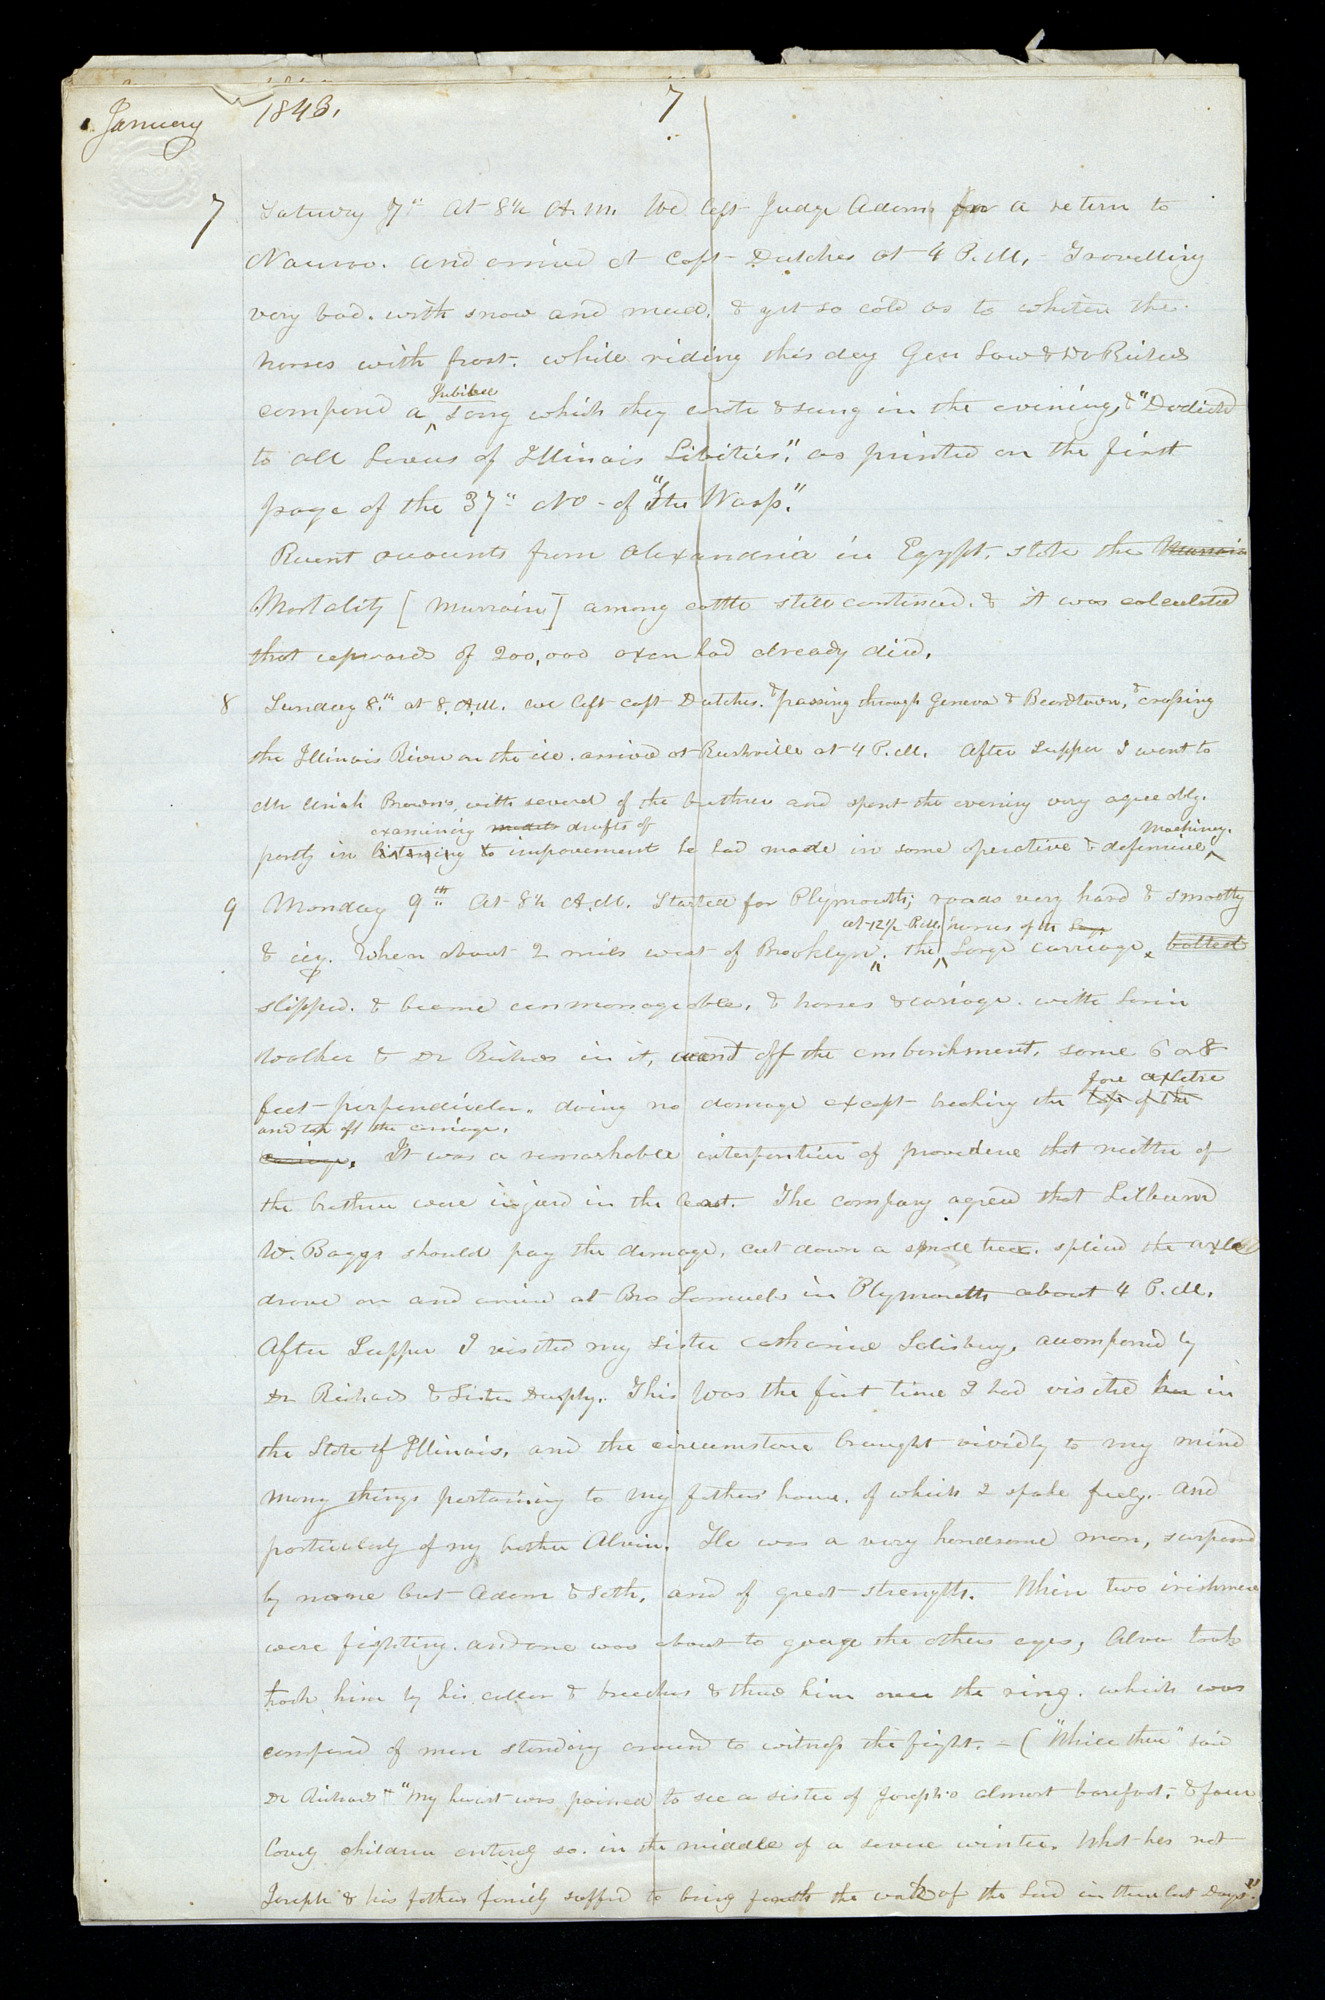 January 1843. 7
7 Saturday 7th At 8½ A.M. We left Judge Adams for a return to
Nauvoo. and arrived at Capt Dutches at 4 P.M. Travelling
very bad. with snow and mud, & yet so cold as to whiten the
horses with frost. while riding this day Gen Law & Dr Richards
composed a Jubilee song which they wrote & sung in the evening, & "Dedicated
to all Lovers of Illinois Liberties", as printed on the first
page of the 37th No - of "The Wasp".
Recent accounts from Alexandria in Egypt. state the Murrain
Mortality [Murrain] among cattle still continued. & it was calculated
that upwards of 200,000 oxen had already died.
8 Sunday 8th at 8. A.M. we left Capt Dutches. & passing through Geneva & Beardstown, & crossing
the Illinois River on the ice. arrived at Rushville at 4 P.M. After Supper I went to
Mr Uriah Browns, with several of the brethren and spent the evening very agreeably.
examining models drafts of Machinery.
partly in listening to improvement he had made in some operative & defensive
9 Monday 9th At 8½ A.M. Started for Plymouth; roads very hard & smooth
at 12½ P.M. horses of the Large
& icy. When about 2 miles west of Brooklyn, the Large carriage,
slipped. & became unmanageable, & horses & cariage. with Lorin
Walker & Dr Richards in it, went off the embankment, some 6 or 8
fore axletree
feet perpendicular. doing no damage except breaking the top of the
and top of the carriage.
carriage. It was a remarkable interposition of providence that neither of
the brethren were injured in the least. The company agreed that Lilburn
W. Boggs should pay the damage, cut down a small tree. spliced the axle
drove on and arrived at Bro Samuels in Plymouth about 4 P.M.
After Supper I visited my sister Catharine Salisbury, accompanied by
Dr Richards & Sister Durphy. This was the first time I had visited her in
the State of Illinois. and the circumstance brought vividly to my mind
many things pertaining to my fathers house. of which I spake freely. and
particularly of my brother Alvin. He was a very handsome man, surpassed
by none but Adam & Seth, and of great strength. When two irishmen
were fighting. and one was about to gouge the others eyes, Alvin took
took him by his collar & breeches & threw him over the ring. which was
composed of men standing around to witness the fight. - ("While there" said
Dr Richards "My heart was pained to see a sister of Joseph's almost barefoot, & four
lovely children entirely so. in the middle of a severe winter. What has not
Joseph & his fathers family suffered to bring forth the work of the Lord in these last Days".